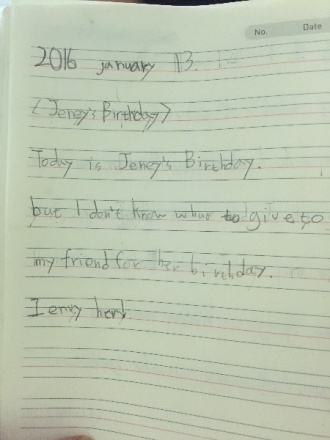 No. Date
2016 january 13.
<Jeney's Birthday>
Today is Jeney's Birthday.
but I don't know what to give to
my friend for her birthday.
I envy her!